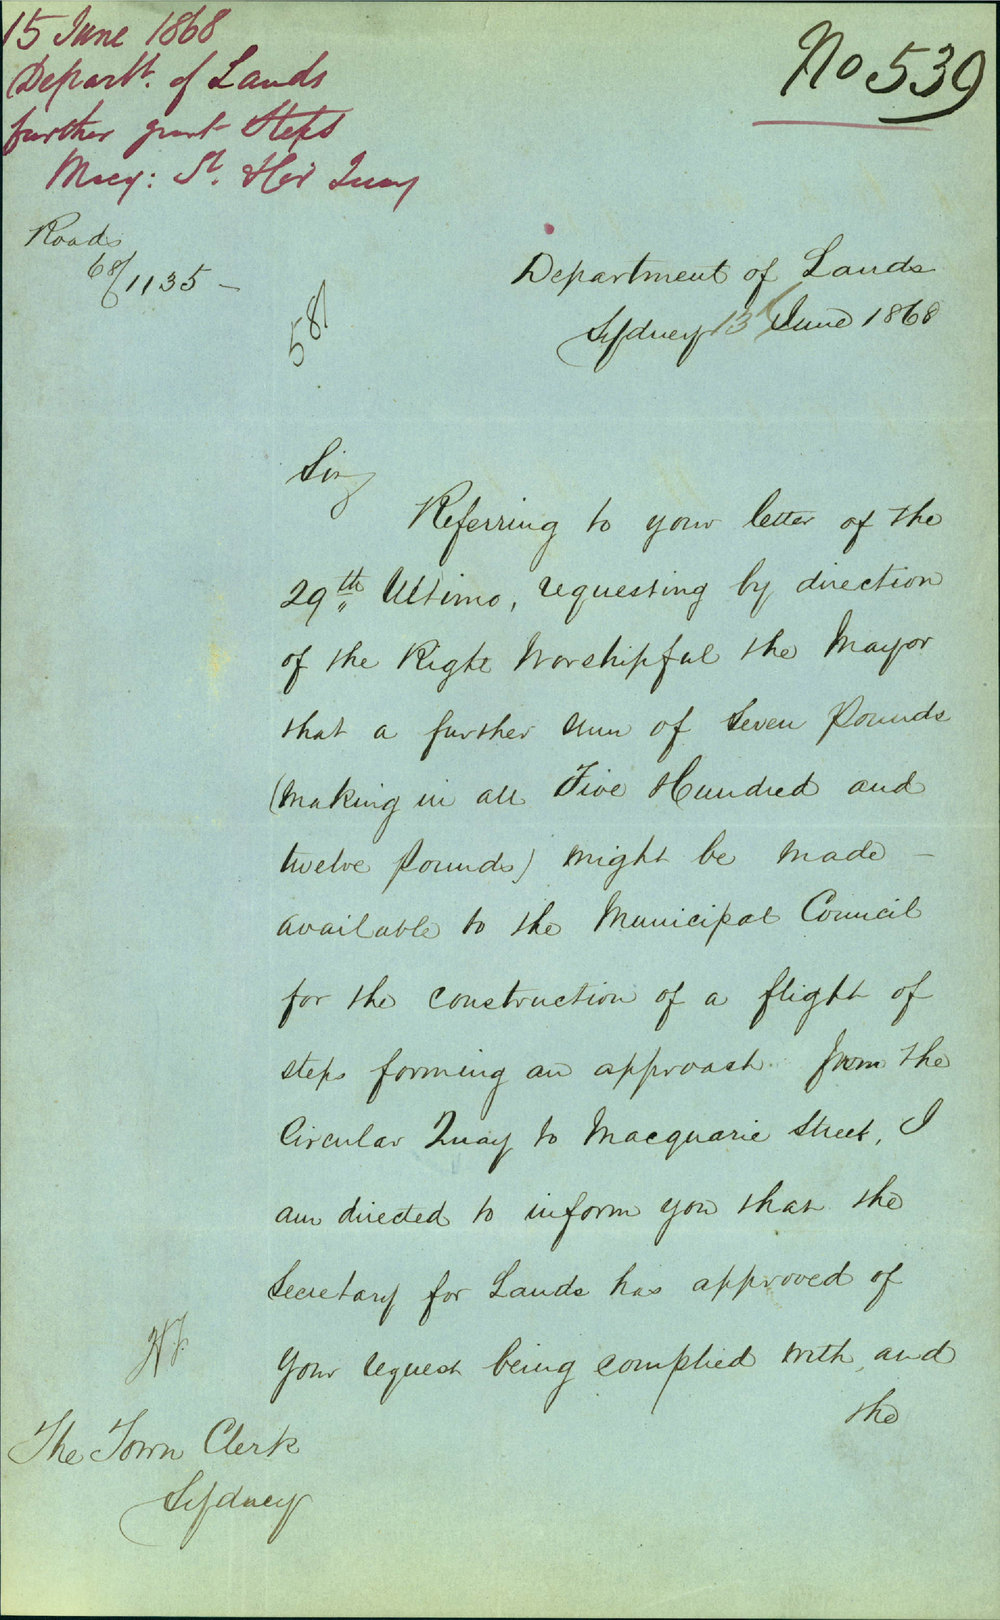 15 June 1868
Departt. of Lands
further grant Steps
Macq: St. & Cir Quay
No 539
Roads
68/1135 -
58/
Department of Lands
Sydney 13 June 1868
Sir,
Referring to your letter of the
29th Ultimo, requesting by direction
of the Right Worshipful the Mayor
that a further sum of Seven Pounds
(making in all Five Hundred and
twelve Pounds) might be made -
available to the Municipal Council
for the construction of a flight of
steps forming an approach from the
Circular Quay to Macquarie Street, I
am directed to inform you that the
Secretary for Lands has approved of
your request being complied with, and
the
The Town Clerk
Sydney